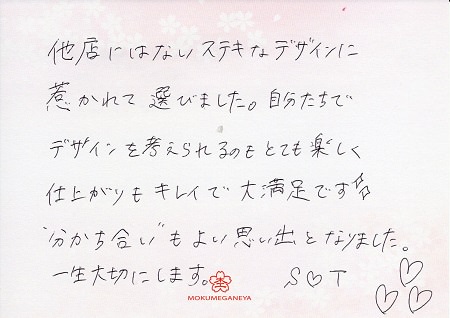 他店にはないステキなデザインに
惹かれて選びました。自分たちで
デザインを考えられるのもとても楽しく
仕上がりもキレイで大満足です
"分かち合い"もよい思い出となりました。
一生大切にします。 S♡T
MOKUMEGANEYA